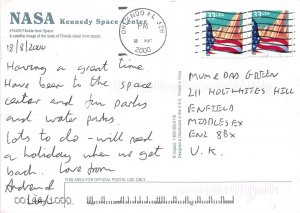 NASA Kennedy Space Center
Florida from Space
A satellite image of the state of Florida taken from space.
18/8/2000
Having a great time
Have been to the space
center and fun parks
and water parks
Lots to do - will need
a holiday when we get
back. Love from
ORLANDO FL 328
2000
33 USA
33 USA
MUM & DAD GREEN
211 HOLTWHITES HILL
ENFIELD
MIDDLESEX
EN2 8BX
U.K.
THIS AREA FOR OFFICIAL POSTAL USE ONLY